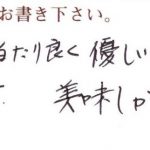 お書き下さい。
当たり良く優しい
美味しか